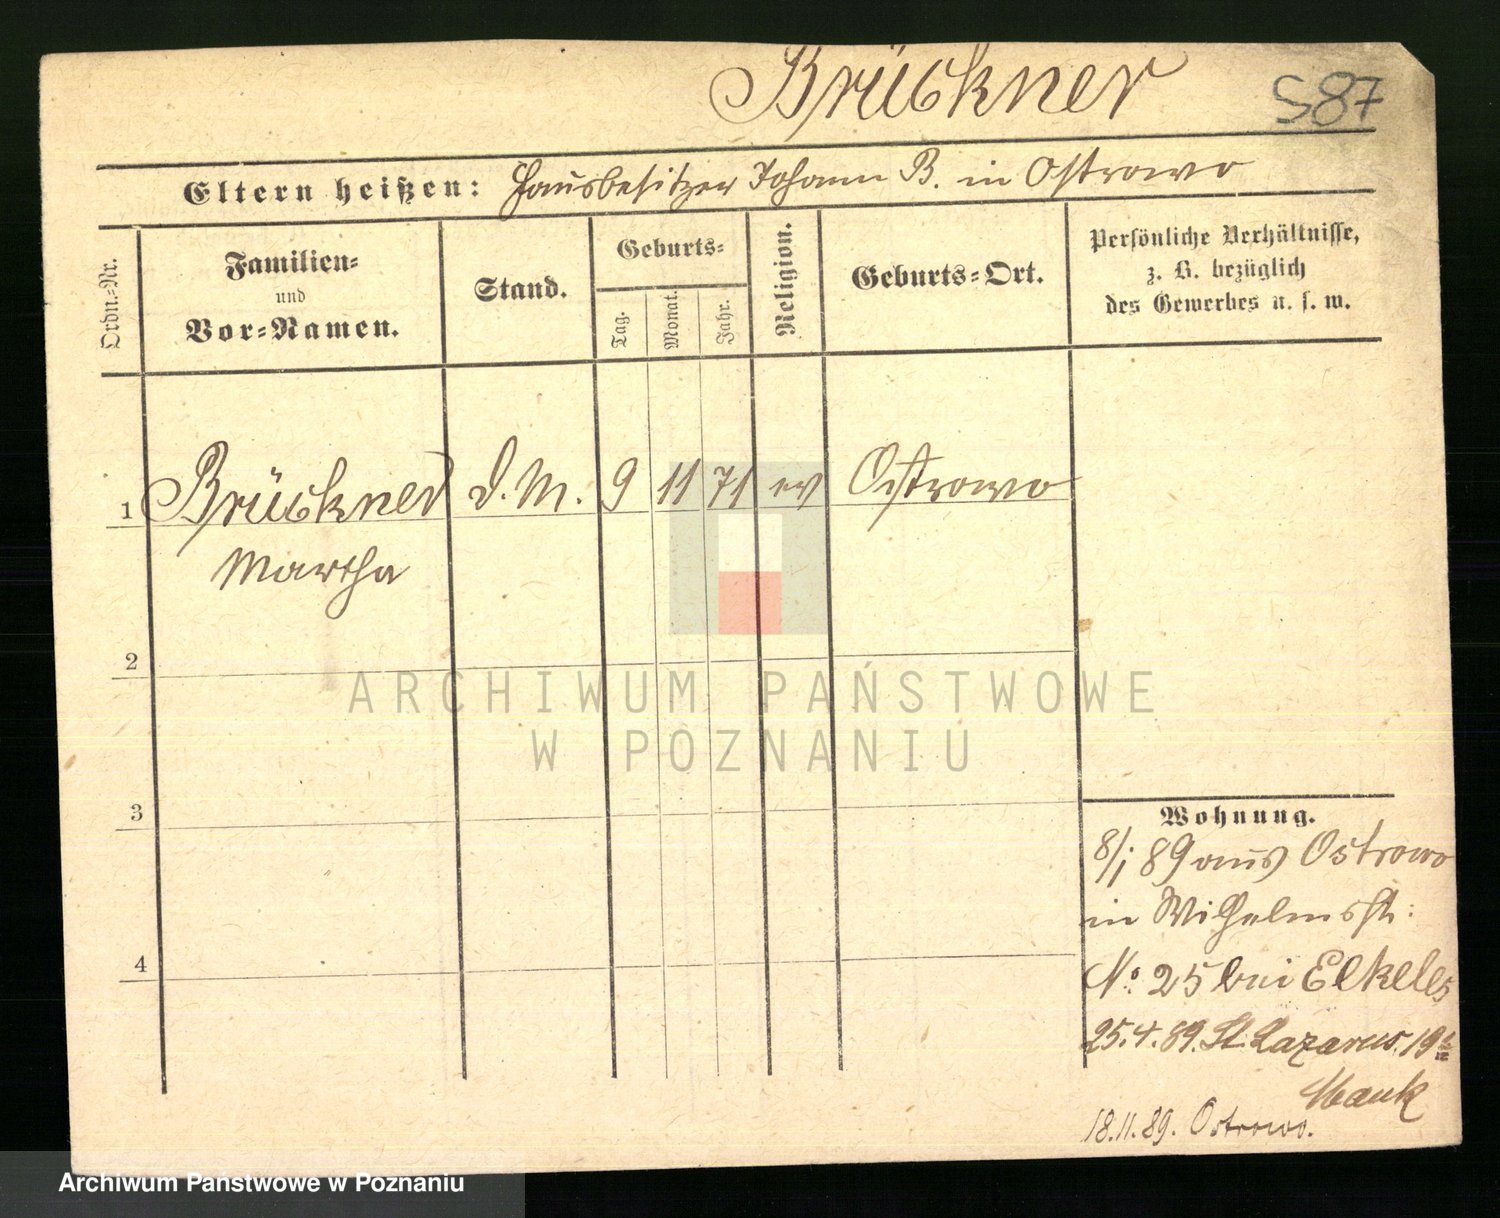 Brückner
S87
Eltern heißen: Hausbesitzer Johann B. in Ostrowo
Ordn.-Nr.
Familien-
und
Vor-Namen.
Stand.
Geburts-
Tag.
Monat.
Jahr.
Religion.
Geburts-Ort.
Persönliche Verhältnisse,
z. B. bezüglich
des Gewerbes u. s. w.
1 Brückner D. M. 9 11 71 ev Ostrowo
Martha
2
3
4
Wohnung.
8/1 89 aus Ostrowo
in Wilhelmstr:
No. 25 bei Elkeles
25.4.89. St. Lazarus. 19
18.11.89. Ostrowo.
ARCHIWUM PAŃSTWOWE
W POZNANIU
Archiwum Państwowe w Poznaniu